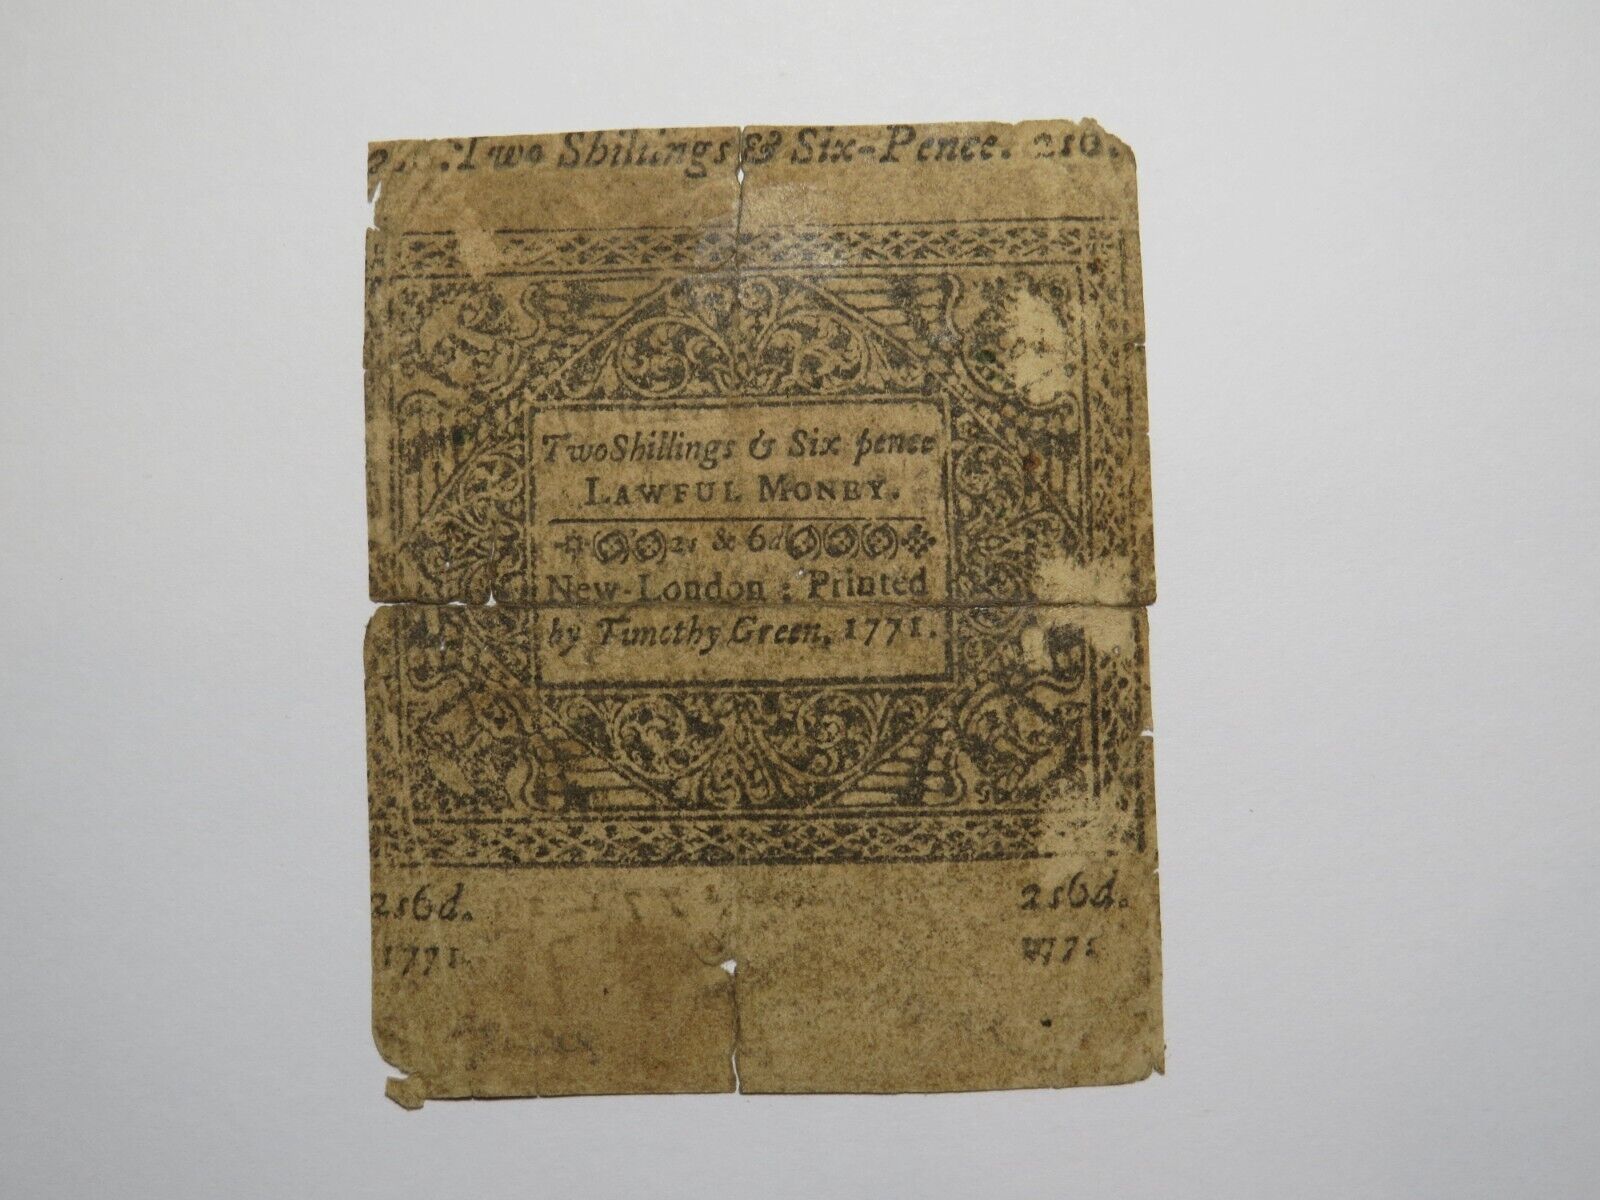 Two Shillings & Six-Pence. 2s6
Two Shillings & Six pence
LAWFUL MONEY.
2s & 6d
New-London: Printed
by Timothy Green, 1771.
2s6d. 2s6d.
1771. 1771